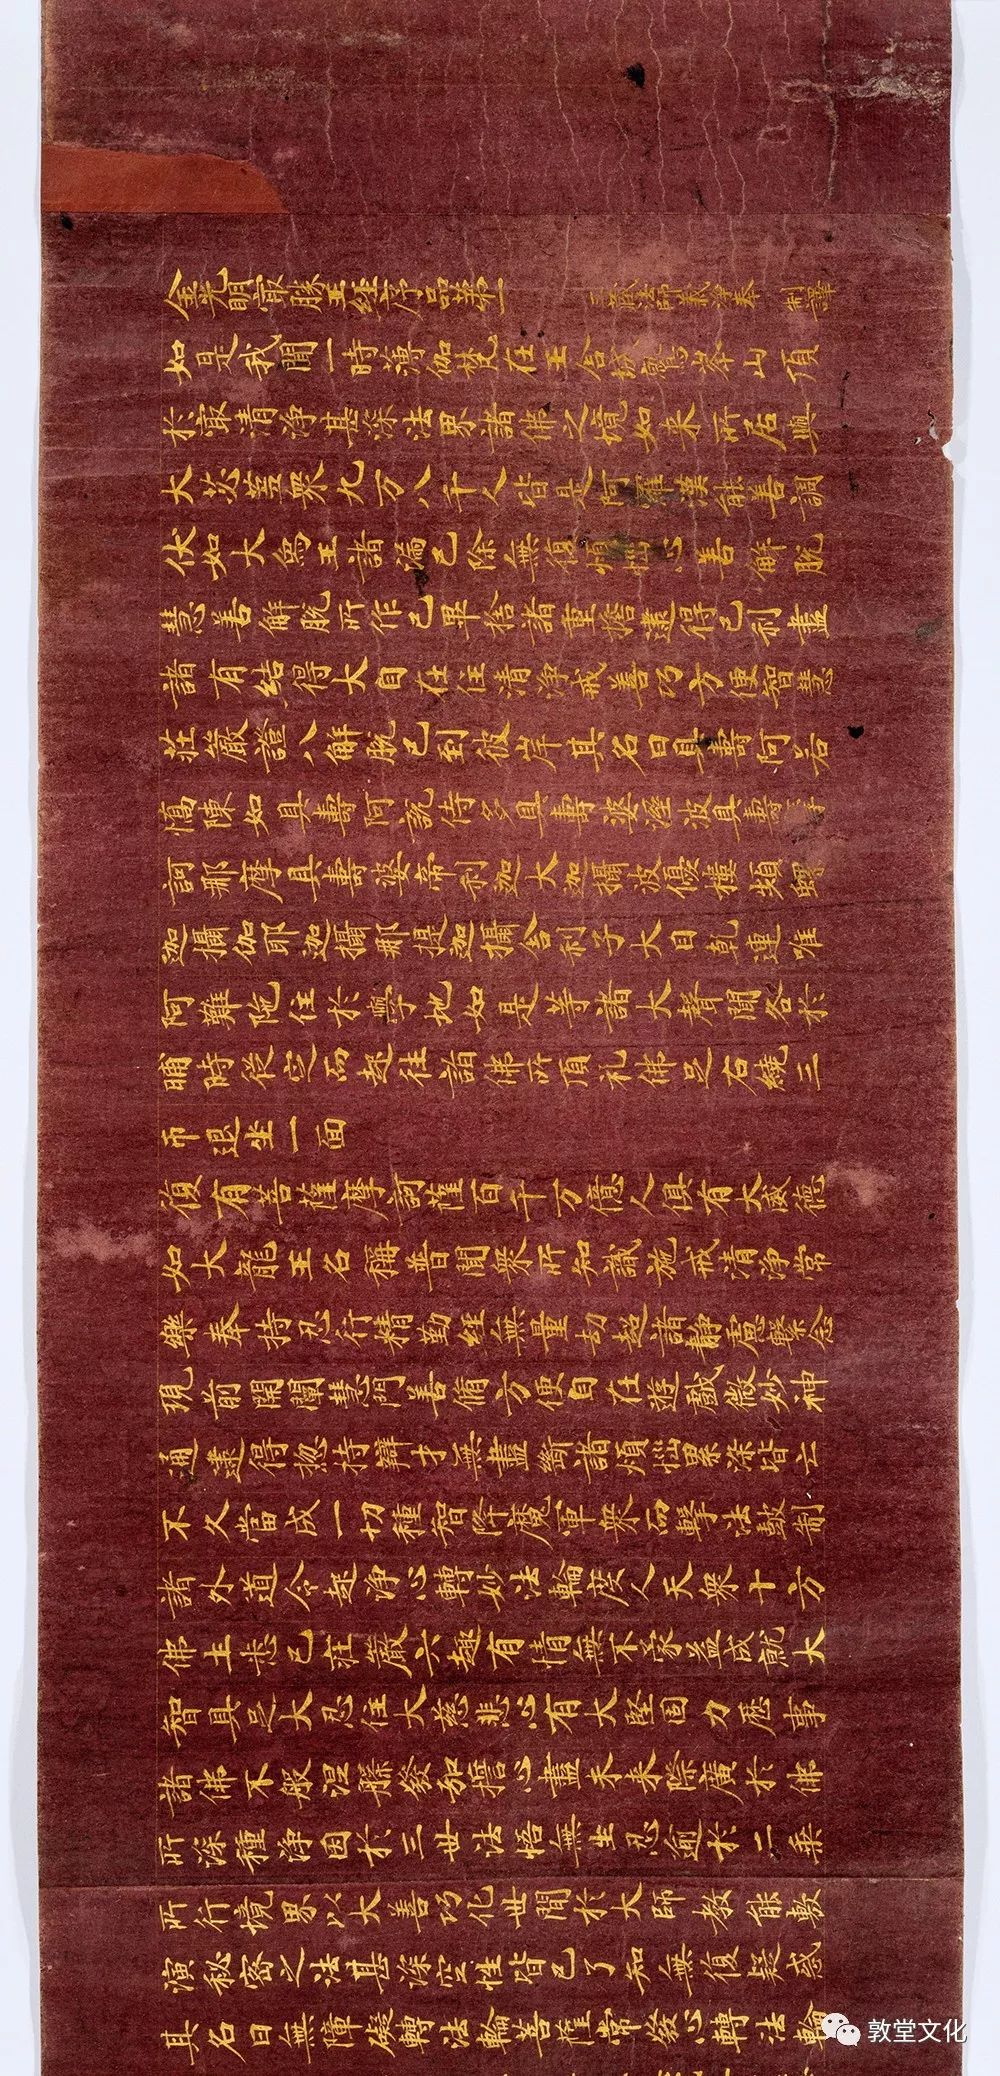 金光明最勝王經序品第一 三藏法師義淨奉 制譯
如是我聞一時薄伽梵在王舍城鷲峯山頂
於最清淨甚深法界諸佛之境如來所居與
大苾蒭衆九万八千人皆是阿羅漢能善調
伏如大象王諸漏已除無復煩惱心善解脫
慧善解脫所作已畢捨諸重擔逮得己利盡
諸有結得大自在住清淨戒善巧方便智慧
莊嚴證八解脫已到彼岸其名曰具壽阿若
憍陳如具壽阿說侍多具壽婆澁波具壽
訶那摩具壽婆帝利迦大迦攝波優樓頻螺
迦攝伽耶迦攝那提迦攝舍利子大目乾連唯
阿難陀住於學地如是等諸大聲聞各於
晡時從定而起往詣佛所頂礼佛足右繞三
帀退坐一面
復有菩薩摩訶薩百千万億人俱有大威德
如大龍王名稱普聞衆所知識施戒清淨常
樂奉持忍行精勤經無量劫超諸靜慮繫念
現前開闡慧門善脩方便自在遊戲微妙神
通逮得惣持辯才無盡斷諸煩惱累染皆亡
不久當成一切種智降魔軍衆而擊法鼓制
諸外道令起淨心轉妙法輪度人天衆十方
佛土悉已莊嚴六趣有情無不蒙益成就大
智具足大忍住大慈悲心有大堅固力歷事
諸佛不般涅槃發弘誓心盡未來際廣於佛
所深種淨因於三世法悟無生忍逾於二乘
所行境界以大善巧化世間於大師教能敷
演秘密之法甚深空性皆已了知無復疑惑
其名曰無障礙轉法輪菩薩常發心轉法輪
敦堂文化